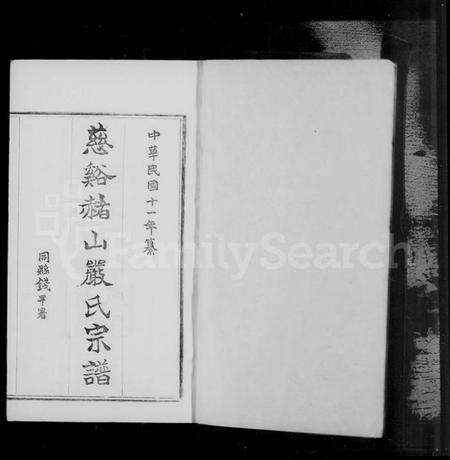 中華民國十一年纂
慈谿赭山嚴氏宗譜
同縣錢罕署
FamilySearch